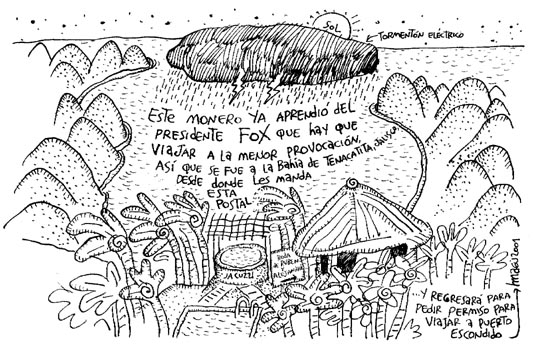 SOL
← TORMENTÓN ELÉCTRICO
ESTE MONERO YA APRENDIÓ DEL
PRESIDENTE FOX QUE HAY QUE
VIAJAR A LA MENOR PROVOCACIÓN,
ASÍ QUE SE FUE A LA BAHÍA DE TENACATITA JALISCO
DESDE DONDE LES MANDA
ESTA
POSTAL
JACUZZI
...Y REGRESARÁ PARA
PEDIR PERMISO PARA
VIAJAR A PUERTO
ESCONDIDO
2001